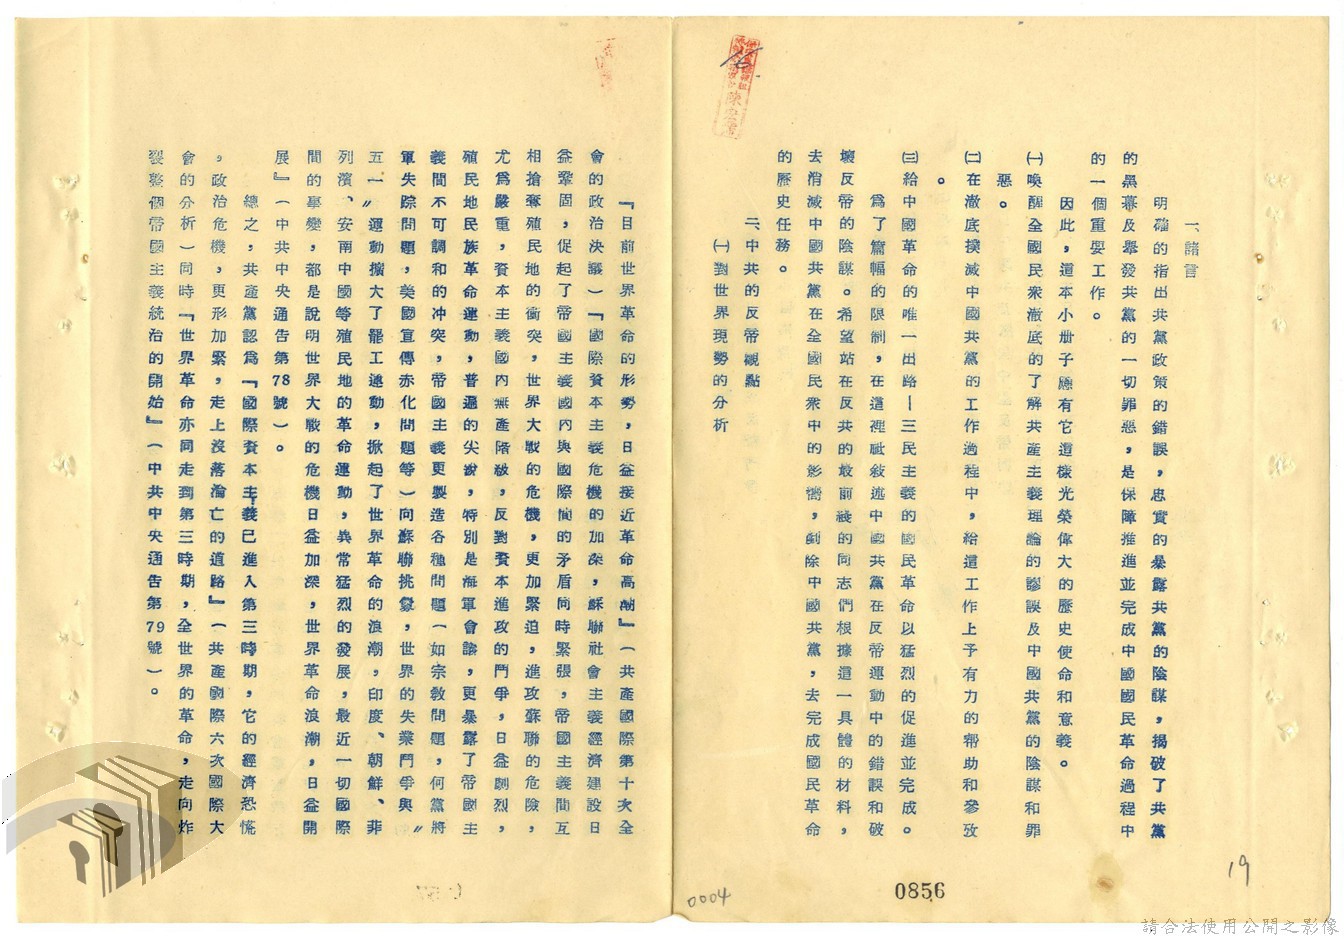 一、諸言
明確的指出共黨政策的錯誤，忠實的暴露共黨的陰謀，揭破了共黨
的黑幕及舉發共黨的一切罪惡，是保障推進並完成中國國民革命過程中
的一個重要工作。
因此，這本小冊子應有它這樣光榮偉大的歷史使命和意義。
㈠喚醒全國民衆澈底的了解共產主義理論的謬誤及中國共黨的陰謀和罪
惡。
㈡在澈底撲滅中國共黨的工作過程中，給這工作上予有力的帮助和參攷
。
㈢給中國革命的唯一出路－三民主義的國民革命以猛烈的促進並完成。
爲了篇幅的限制，在這裡祗敍述中國共黨在反帝運動中的錯誤和破
壞反帝的陰謀。希望站在反共的最前綫的同志們根據這一具體的材料，
去消滅中國共黨在全國民衆中的影響，剷除中國共黨，去完成國民革命
的歷史任務。
二、中共的反帝觀點
㈠對世界現勢的分析
『目前世界革命的形勢，日益接近革命高潮』（共產國際第十次全
會的政治決議）『國際資本主義危機的加深，蘇聯社會主義經濟建設日
益鞏固，促起了帝國主義國內與國際間的矛盾同時緊張，帝國主義間互
相搶奪殖民地的衝突，世界大戰的危機，更加緊迫，進攻蘇聯的危險，
尤爲嚴重，資本主義國內無產階級，反對資本進攻的鬥爭，日益劇烈，
殖民地民族革命運動，普遍的尖銳，特別是海軍會議，更暴露了帝國主
義間不可調和的冲突，帝國主義更製造各種問題（如宗教問題，何黨將
軍失踪問題，美國宣傳赤化問題等）向蘇聯挑釁，世界的失業鬥爭與〝
五一〞運動擴大了罷工運動，掀起了世界革命的浪潮，印度、朝鮮、菲
列濱、安南中國等殖民地的革命運動，異常猛烈的發展，最近一切國際
間的事變，都是說明世界大戰的危機日益加深，世界革命浪潮，日益開
展』（中共中央通告第78號）。
總之，共產黨認爲『國際資本主義已進入第三時期，它的經濟恐慌
，政治危機，更形加緊，走上沒落淪亡的道路』（共產國際六次國際大
會的分析）同時『世界革命亦同走到第三時期，全世界的革命，走向炸
裂整個帝國主義統治的開始』（中共中央通告第79號）。
0004
0856
19
請合法使用公開之影像